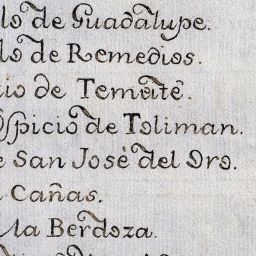 lo de Guadalupe.
lo de Remedios.
io de
Ospicio de Toliman.
e San José del Oro.
Cañas.
la Berdoza.